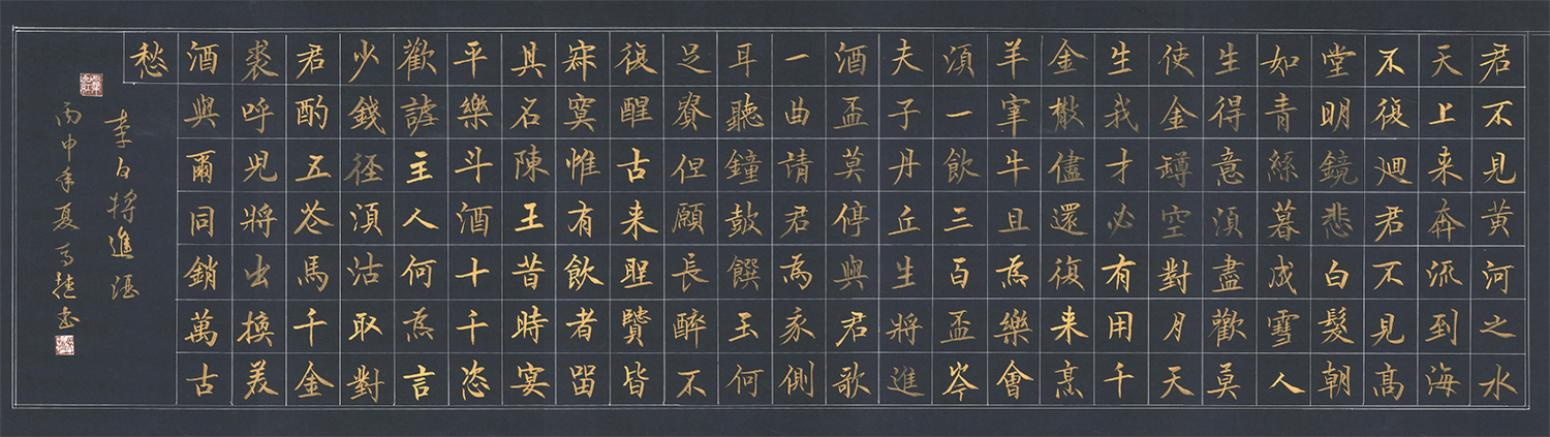 君不見黄河之水
天上来奔流到海
不復迴君不見高
堂明鏡悲白髮朝
如青絲暮成雪人
生得意須盡歡莫
使金罇空對月天
生我才必有用千
金散儘還復来烹
羊宰牛且為樂會
須一飲三百盃岑
夫子丹丘生將進
酒盃莫停與君歌
一曲請君為我側
耳聽鐘鼓饌玉何
足貴但願長醉不
復醒古来聖賢皆
寂寞惟有飲者留
其名陳王昔時宴
平樂斗酒十千恣
歡謔主人何為言
少錢徑須沽取對
君酌五花馬千金
裘呼兒將出換美
酒與爾同銷萬古
愁
李白將進酒
丙申年夏